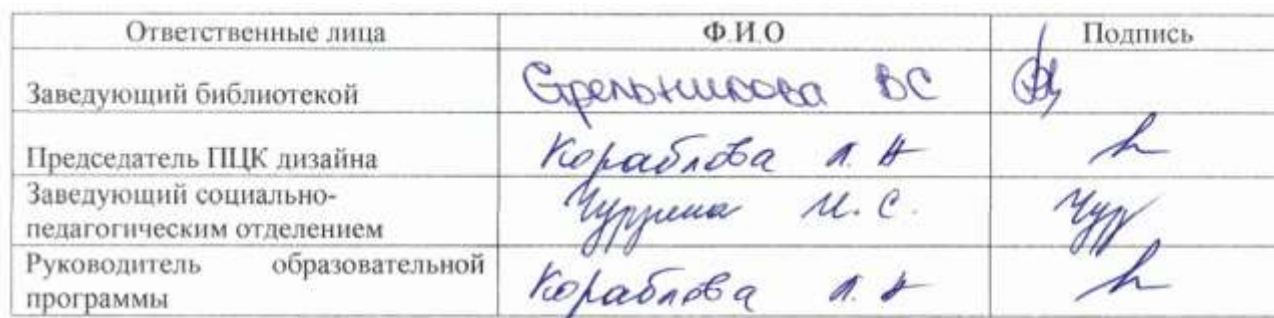 Ответственные лица Ф.И.О Подпись
Заведующий библиотекой Стрельникова ВС
Председатель ПЦК дизайна Кораблова Л. Н
Заведующий социально-
педагогическим отделением И. С. Чур
Руководитель образовательной
программы Кораблова Л. Н